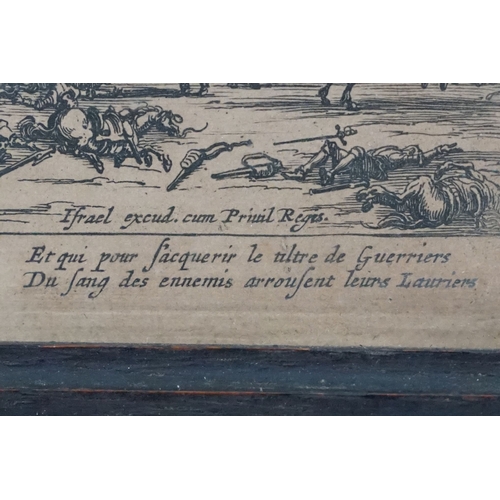 Iſrael excud. cum Priuil Regis.
Et qui pour ſacquerir le tiltre de Guerriers
Du ſang des ennemis arrouſent leurs Lauriers